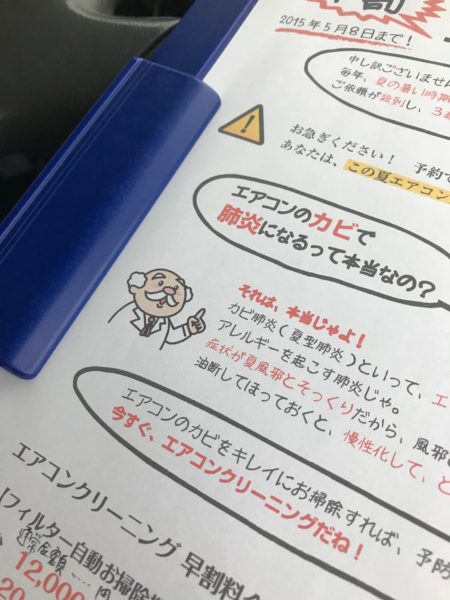 割
2015年5月8日まで!
申し訳ございません
毎年、夏の暑い時期
ご依頼が殺到し、3
お急ぎください! 予約で
あなたは、この夏エアコン
エアコンのカビで
肺炎になるって本当なの?
それは、本当じゃよ!
カビ肺炎(夏型肺炎)といって、エ
アレルギーを起こす肺炎じゃ。
症状が夏風邪とそっくりだから、風邪
油断してほっておくと、慢性化して、
エアコンのカビをキレイにお掃除すれば、予防
今すぐ、エアコンクリーニングだね!
エアコンクリーニング 早割料金
フィルター自動お掃除
通常金額
12,000円
20